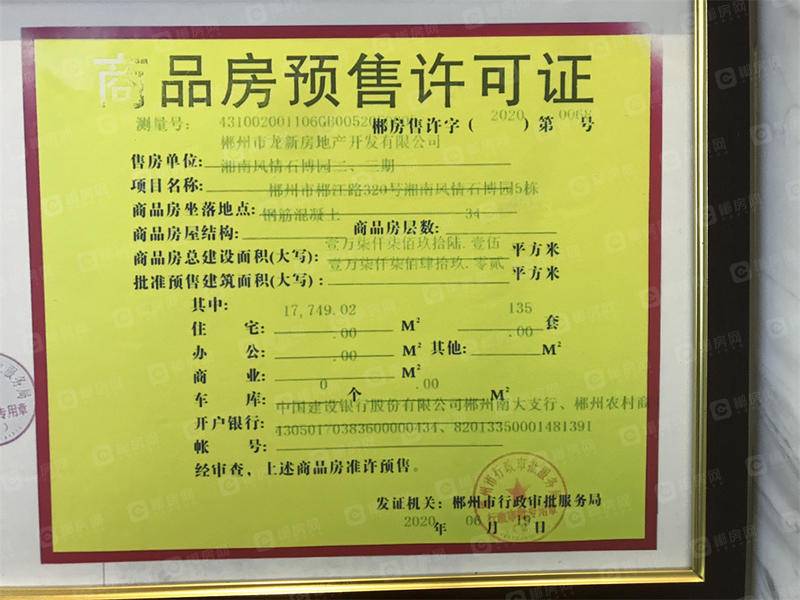 商品房预售许可证
测量号: 431002001106GB0052
郴房售许字 ( 2020 ) 第 0068 号
郴州市龙新房地产开发有限公司
售房单位: 湘南风情石博园二、三期
项目名称: 郴州市郴江路320号湘南风情石博园5栋
商品房坐落地点: 钢筋混凝土 34
商品房屋结构: 商品房层数:
壹万柒仟柒佰玖拾陆.壹伍
商品房总建设面积(大写): 平方米
壹万柒仟柒佰肆拾玖.零贰
批准预售建筑面积(大写): 平方米
其中: 17,749.02 135
住 宅: .00 M² .00 套
办 公: .00 M² 其他: M²
商 业: M²
0 .00
车 库: 个 M²
中国建设银行股份有限公司郴州南大支行、郴州农村商
开户银行: 43050170383600000434、82013350001481391
帐 号:
经审查,上述商品房准许预售。
发证机关: 郴州市行政审批服务局
2020 年 06 月 19 日
郴房网